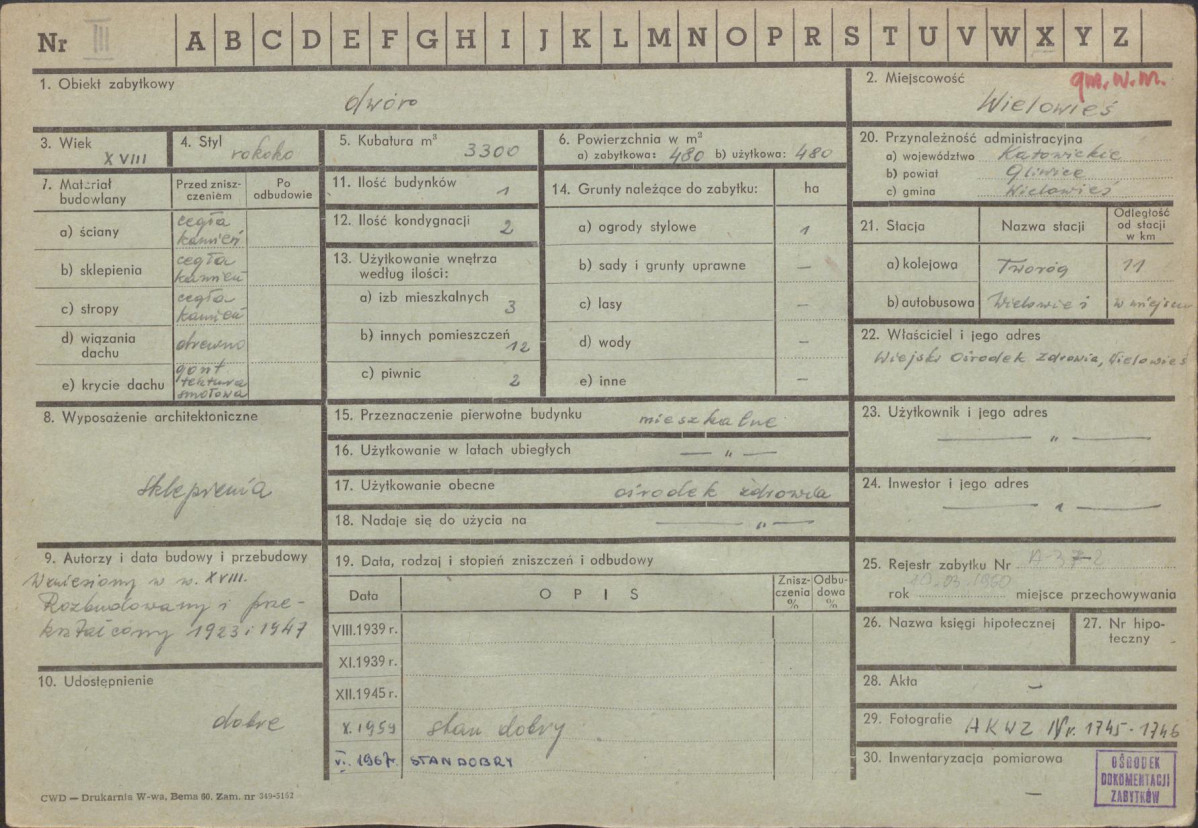 Nr III A B C D E F G H I J K L M N O P R S T U V W X Y Z
1. Obiekt zabytkowy
dwór
2. Miejscowość
gm. W.M.
Wielowieś
3. Wiek
XVIII
4. Styl
rokoko
5. Kubatura m³
3300
6. Powierzchnia w m²
a) zabytkowa: 480 b) użytkowa: 480
20. Przynależność administracyjna
a) województwo Katowickie
b) powiat Gliwice
c) gmina Wielowieś
7. Materiał budowlany
Przed zniszczeniem
Po odbudowie
a) ściany
cegła
kamień
b) sklepienia
cegła
kamień
c) stropy
cegła
kamień
d) wiązania dachu
drewno
e) krycie dachu
gont
tektura
smołowa
11. Ilość budynków
1
12. Ilość kondygnacji
2
13. Użytkowanie wnętrza
według ilości:
a) izb mieszkalnych
3
b) innych pomieszczeń
12
c) piwnic
2
14. Grunty należące do zabytku:
ha
a) ogrody stylowe
1
b) sady i grunty uprawne
—
c) lasy
—
d) wody
—
e) inne
—
21. Stacja
Nazwa stacji
Odległość
od stacji
w km
a) kolejowa
Tworóg
11
b) autobusowa
Wielowieś
w miejscu
22. Właściciel i jego adres
Wiejski Ośrodek Zdrowia, Wielowieś
8. Wyposażenie architektoniczne
sklepienia
15. Przeznaczenie pierwotne budynku
mieszkalne
16. Użytkowanie w latach ubiegłych
— „ —
17. Użytkowanie obecne
ośrodek zdrowia
18. Nadaje się do użycia na
— „ —
23. Użytkownik i jego adres
— „ —
24. Inwestor i jego adres
— „ —
9. Autorzy i data budowy i przebudowy
Wzniesiony w w. XVIII.
Rozbudowany i prze-
kształcony 1923 i 1947
10. Udostępnienie
dobre
19. Data, rodzaj i stopień zniszczeń i odbudowy
Data
OPIS
Znisz-
czenia
%
Odbu-
dowa
%
VIII.1939 r.
XI.1939 r.
XII.1945 r.
X. 1959
stan dobry
VI. 1967r.
STAN DOBRY
25. Rejestr zabytku Nr A-372
rok 10.03.1960 miejsce przechowywania
26. Nazwa księgi hipotecznej
27. Nr hipo-
teczny
28. Akta
—
29. Fotografie
AKWZ Nr. 1745-1746
30. Inwentaryzacja pomiarowa
—
OŚRODEK
DOKUMENTACJI
ZABYTKÓW
CWD — Drukarnia W-wa, Bema 60. Zam. nr 349-5162